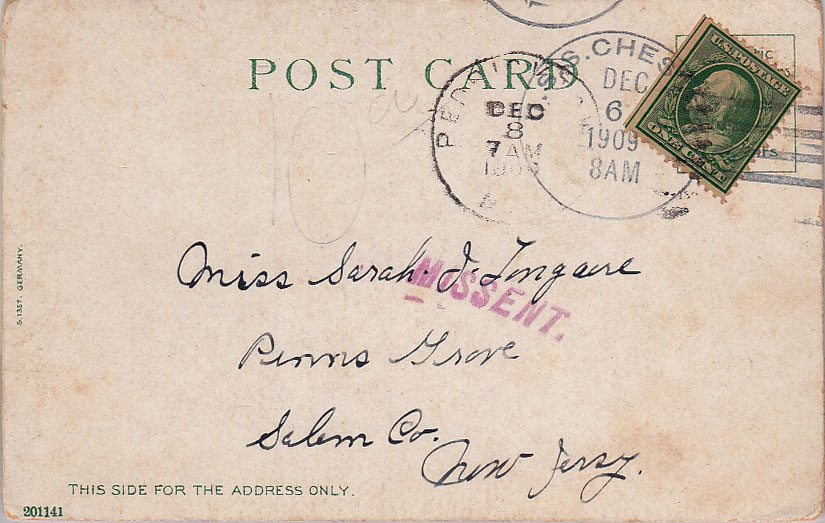 POST CARD
U.S. POSTAGE
ONE CENT
DEC
6
1909
8AM
DEC
8
7 AM
10¢
Miss Sarah J. Longacre
MISSENT.
Penns Grove
Salem Co.
New Jersy.
S.1357. GERMANY.
THIS SIDE FOR THE ADDRESS ONLY.
201141